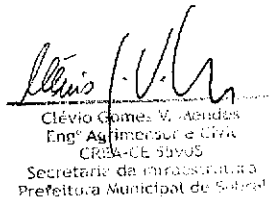 Clévio Gomes V. Mendes
Engº Agrimensor e Civil
CREA-CE
Secretaria da Infraestrutura
Prefeitura Municipal de Sobral